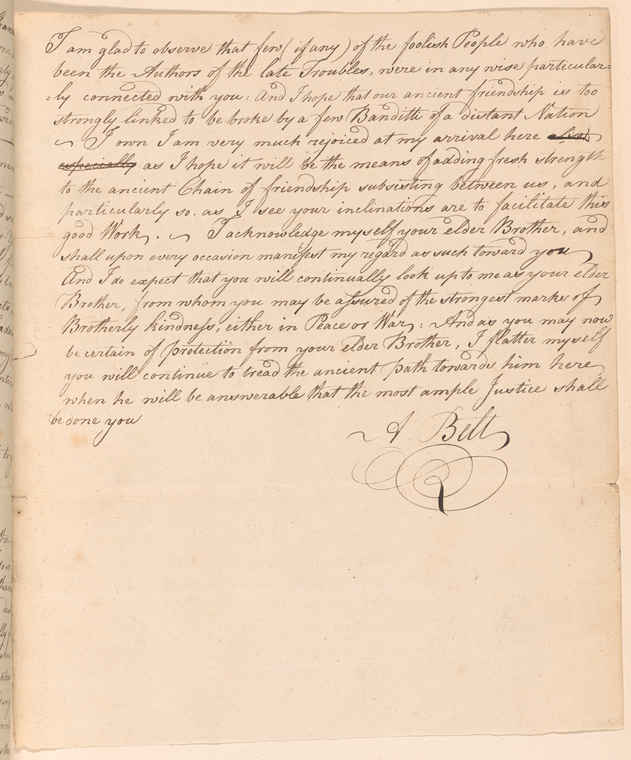 I am glad to observe that few (if any) of the foolish People who have
been the Authors of the late Troubles, were in any wise particular=
=ly connected with you: And I hope that our ancient friendship is too
strongly linked to be broke by a few Banditti of a distant Nation
~ I own I am very much rejoiced at my arrival here
especially as I hope it will be the means of adding fresh strength
to the ancient Chain of friendship subsisting between us, and
particularly so. as I see your inclinations are to facilitate this
good Work. ~ I acknowledge myself your elder Brother, and
shall upon every occasion manifest my regard as such toward you
And I do expect that you will continually look up to me as your elder
Brother, from whom you may be assured of the strongest marks of
Brotherly kindness, either in Peace or War: And as you may now
be certain of protection from your elder Brother, I flatter myself
you will continue to tread the ancient path towards him here
when he will be answerable that the most ample Justice shall
be done you
~ A Belt